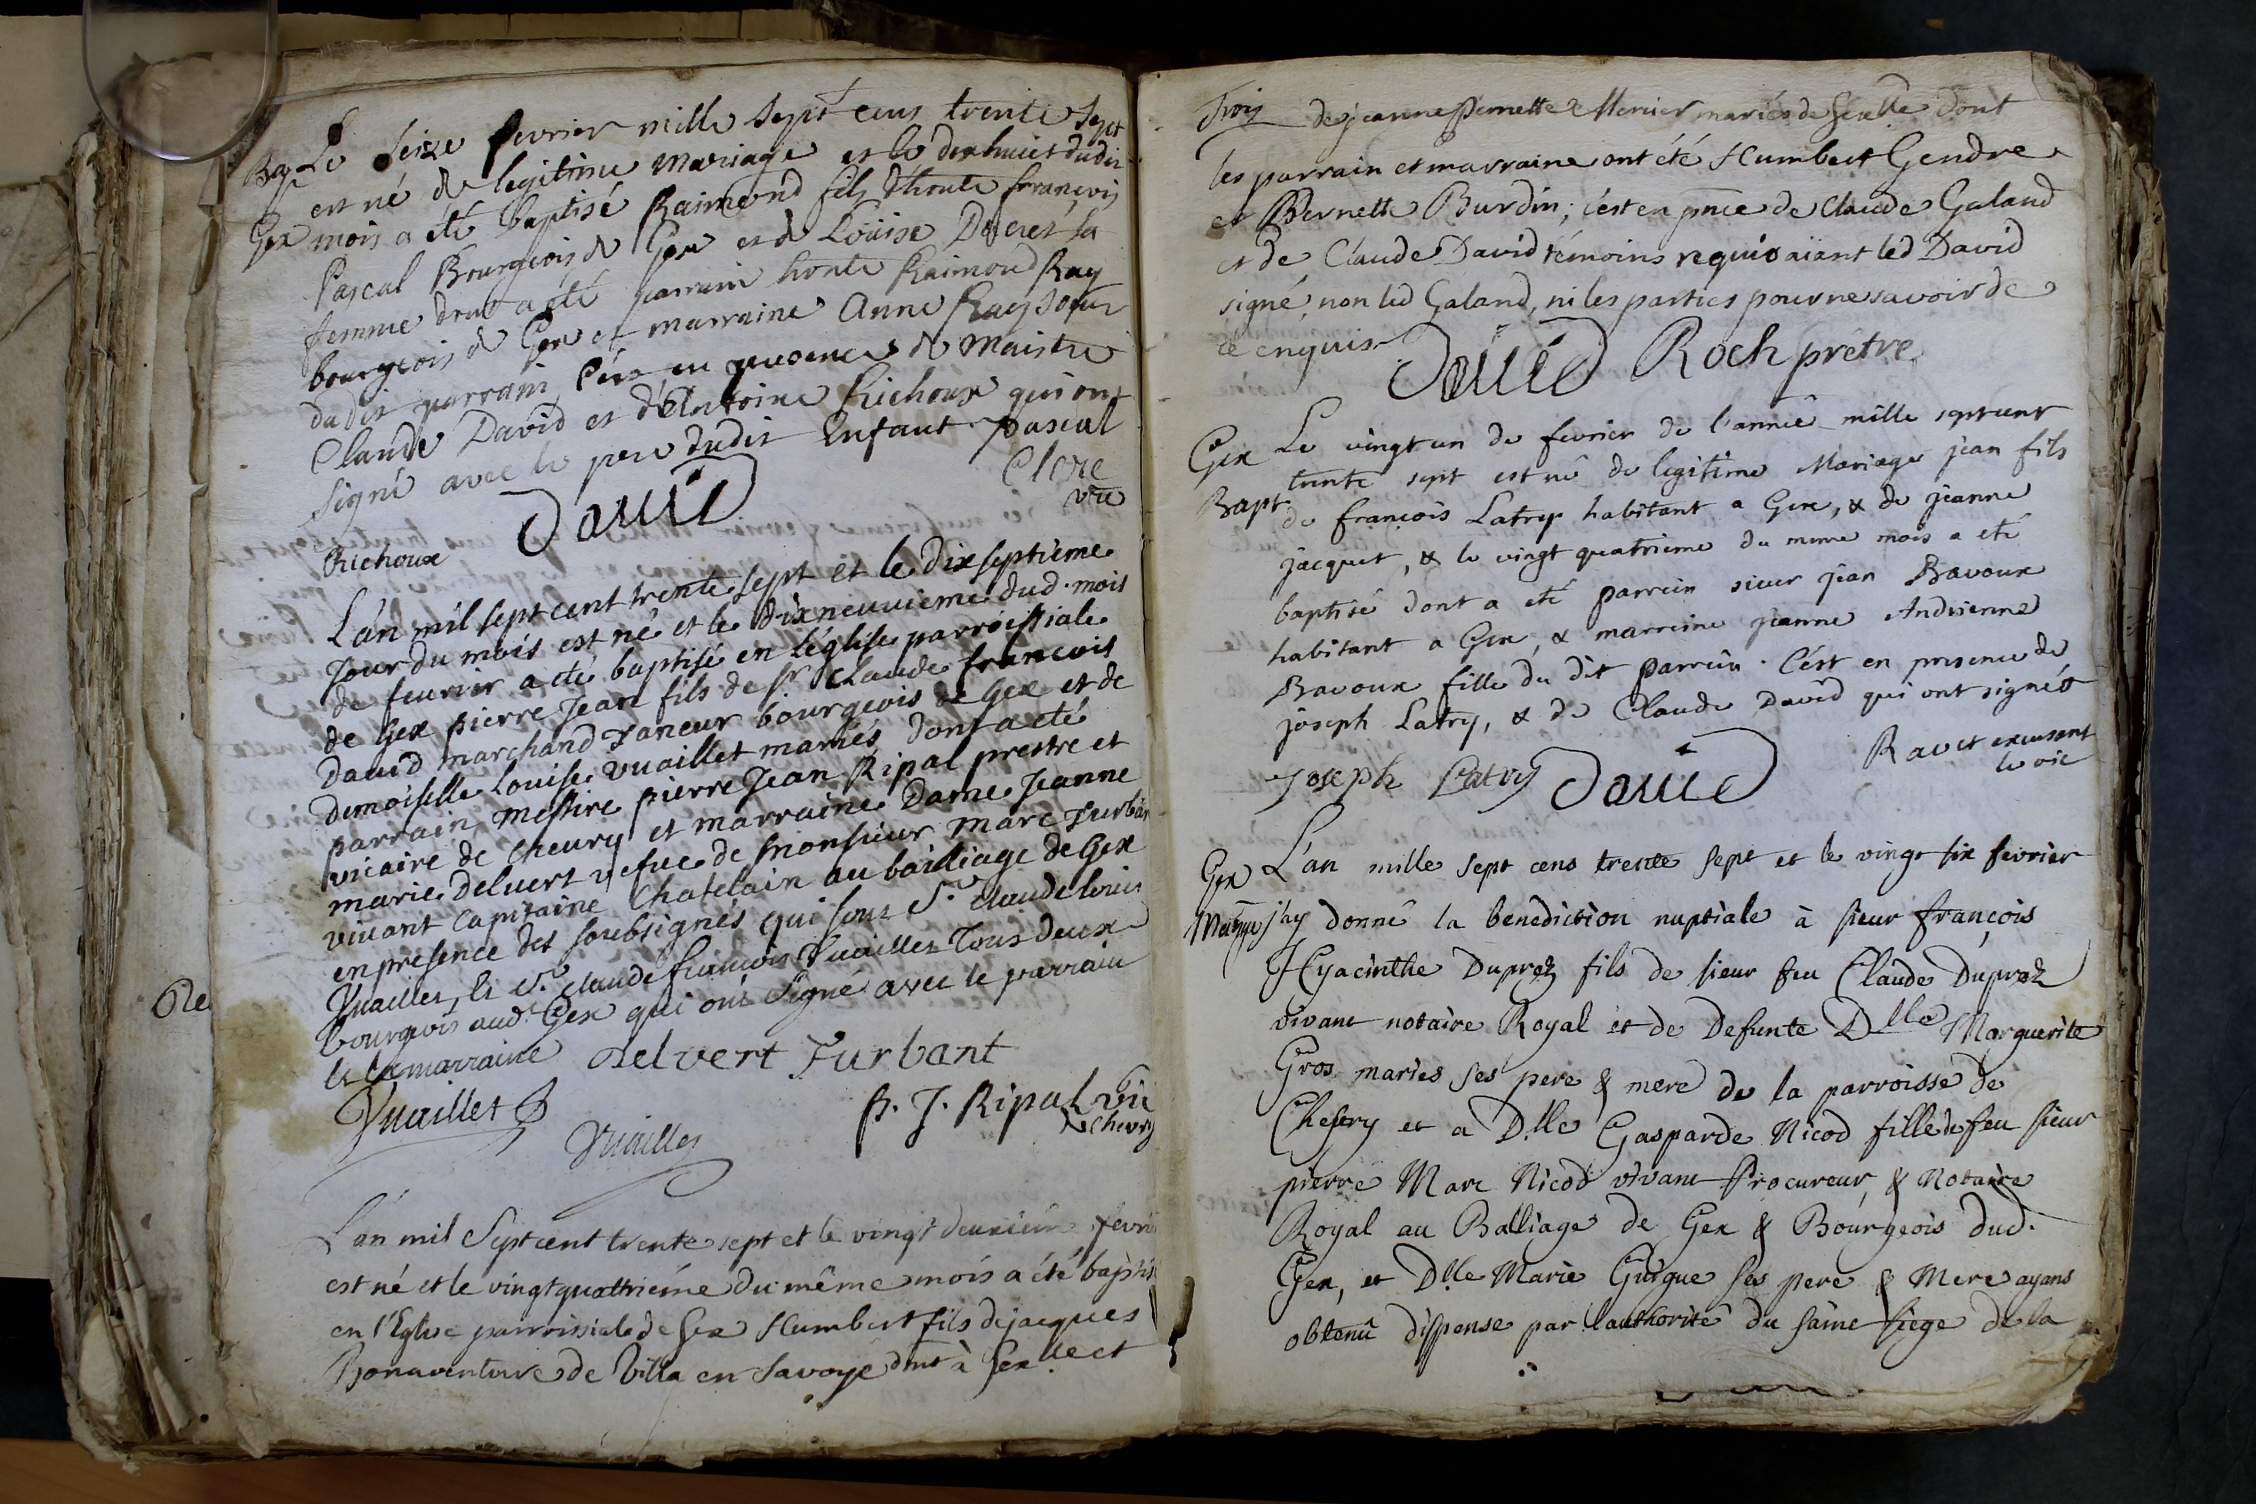 Bap. Le seize fevrier mille sept cens trente sept
est né de legitime mariage et le dix huict dudit
Gex mois a été baptisé Raimond fils d'honte françois
Pascal Bourgeois de Gex et de Loüise Decret sa
femme dont a été parrain honte Raimond Ray
bourgeois de Gex et marraine Anne Ray soeur
dudit parrain, c'est en presence de Maistre
Claude David et d'Antoine Richoux qui ont
signé avec le pere dudit Enfant. Pascal
David
Clerc
vic
Richoux
L'an mil sept cent trente sept et le dixseptieme
Jour du mois est né et le dixneuvieme dud. mois
de feurier a eté baptisé en l'église parroissiale
de Gex pierre Jean fils de sr. Claude francois
David marchand Taneur bourgeois de Gex et de
demoiselle Louise vuaillet mariés dont a eté
parrain messire pierre Jean Ripal prestre et
vicaire de cheury et marraine Dame Jeanne
marie deluert vefue de monsieur marc Turban
viuant Capitaine Chatelain au bailliage de Gex
en presence des soubsignés qui sont Sr. claude louis
Vuaillet, & Sr. claude francois Vuaillet Tous deux
bourgeois aud. Gex qui ont signé avec le parrain
& la marraine delvert Turbant
Vuaillet
P. J. Ripal vic
Chevry
Vuaillet
L'an mil Sept cent trente sept et le vingt deuxieme fevri
est né et le vingt quattriéme du même mois a été baptis
en l'Eglise parroissiale de Gex Humbert fils de jacques
Bonaventure de Villa en Savoye dmt à Gex et
Trois de jeanne Pernette Mercier mariés de Gex dont
les parrain et marraine ont été Humbert Gendre
et Pernette Burdin; c'est en pnce de Claude Galand
et de Claude David témoins requis aïant led David
signé, non led Galand, ni les parties pour ne savoir de
ce enquis
David Roch prêtre
Gex Le vingt un de fevrier de l'année mille sept cent
trente sept est né de legitime Mariage jean fils
Bapt. de françois Latry habitant a Gex, & de jeanne
jacquet, & le vingt quatrieme du meme mois a eté
baptisé dont a eté parrein sieur jean Bavoux
habitant a Gex, & marreine jeanne Andrienne
Bavoux fille du dit parrein. C'ést en presence de
joseph Latry, & de Claude David qui ont signés
Joseph Latry David
Ravet
Gex L'an mille sept cens trente sept et le vingt six fevrier
Mariage j'ay donné la benediction nuptiale à sieur françois
Hyacinthe Duprez fils de sieur feu Claude Duprez
vivant notaire Royal et de Defunte Dlle Marguerite
Gros mariés ses pere & mere de la parroisse de
Chesery et a D.lle Gasparde Nicod fille de feu sieur
pierre Marc Nicod vivant Procureur, & Notaire
Royal au Balliage de Gex & Bourgeois dud.
Gex, et D.lle Marie Guigue ses pere & Mere ayans
obtenû dispense par l'authorité du saint siege de la